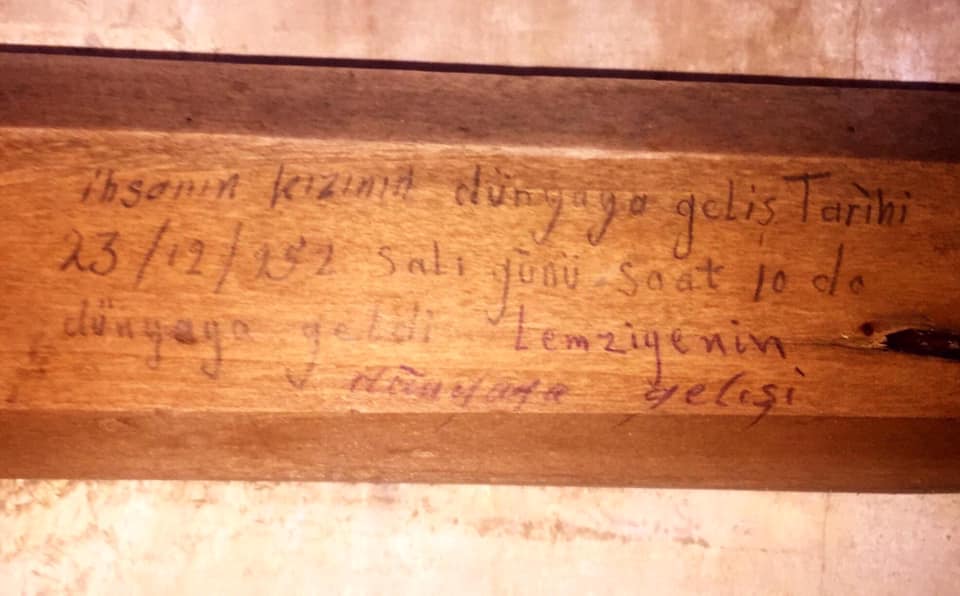 ihsanın kızının dünyaya geliş Tarihi
23/12/952 Salı günü saat 10 da
dünyaya geldi Lemziyenin
dünyaya gelişi